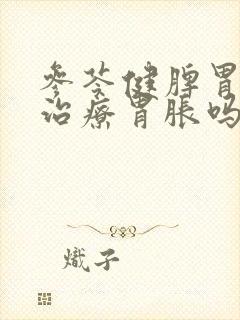 参苓健脾胃
治疗胃胀吗
炽子